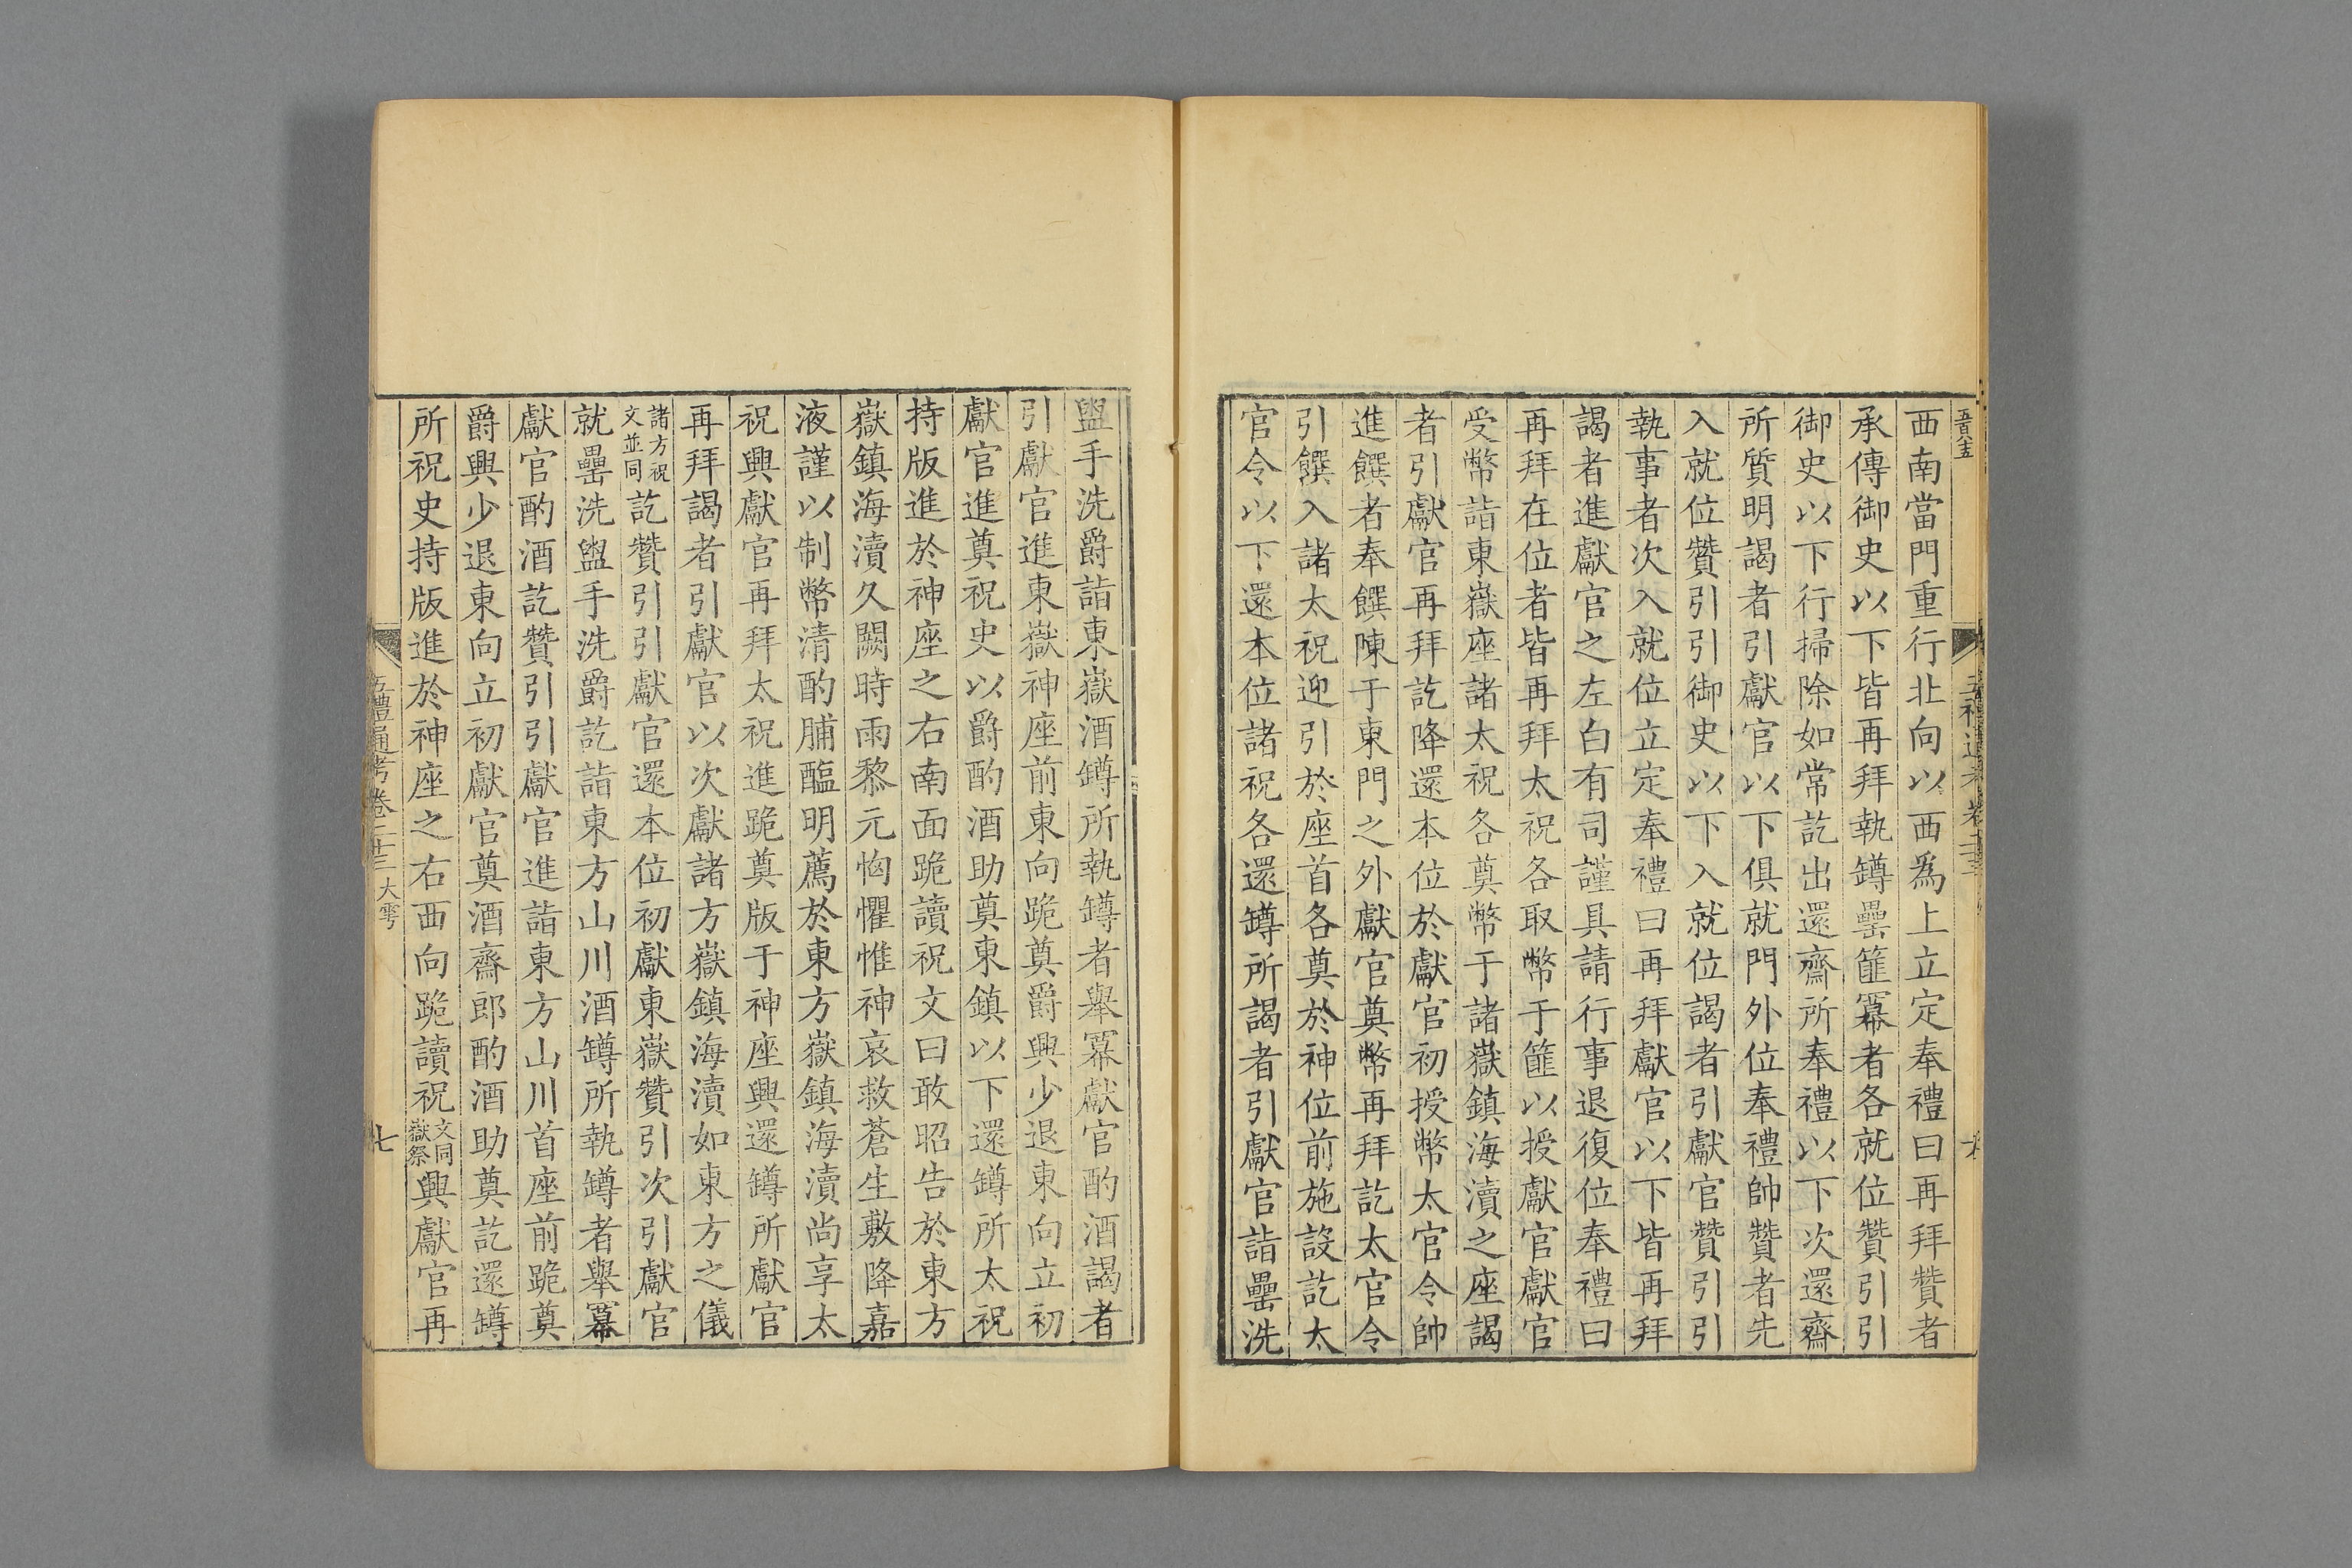 西南當門重行北向以西爲上立定奉禮曰再拜贊者
承傳御史以下皆再拜執罇罍篚冪者各就位贊引引
御史以下行掃除如常訖出還齋所奉禮以下次還齋
所質明謁者引獻官以下俱就門外位奉禮帥贊者先
入就位贊引引御史以下入就位謁者引獻官贊引引
執事者次入就位立定奉禮曰再拜獻官以下皆再拜
謁者進獻官之左白有司謹具請行事退復位奉禮曰
再拜在位者皆再拜太祝各取幣于篚以授獻官獻官
受幣詣東嶽座諸太祝各奠幣于諸嶽鎮海瀆之座謁
者引獻官再拜訖降還本位於獻官初授幣太官令帥
進饌者奉饌陳于東門之外獻官奠幣再拜訖太官令
引饌入諸太祝迎引於座首各奠於神位前施設訖太
官令以下還本位諸祝各還罇所謁者引獻官詣罍洗
盥手洗爵詣東嶽酒罇所執罇者舉冪獻官酌酒謁者
引獻官進東嶽神座前東向跪奠爵興少退東向立初
獻官進奠祝史以爵酌酒助奠東鎮以下還罇所太祝
持版進於神座之右南面跪讀祝文曰敢昭告於東方
嶽鎮海瀆久闕時雨黎元恟懼惟神哀救蒼生敷降嘉
液謹以制幣清酌脯醢明薦於東方嶽鎮海瀆尚享太
祝興獻官再拜太祝進跪奠版于神座興還罇所獻官
再拜謁者引獻官以次獻諸方嶽鎮海瀆如東方之儀
諸方祝文並同訖贊引引獻官還本位初獻東嶽贊引次引獻官
就罍洗盥手洗爵訖詣東方山川酒罇所執罇者舉冪
獻官酌酒訖贊引引獻官進詣東方山川首座前跪奠
爵興少退東向立初獻官奠酒齋郎酌酒助奠訖還罇
所祝史持版進於神座之右西向跪讀祝文同嶽祭興獻官再
五禮通考卷二十三 大雩 七